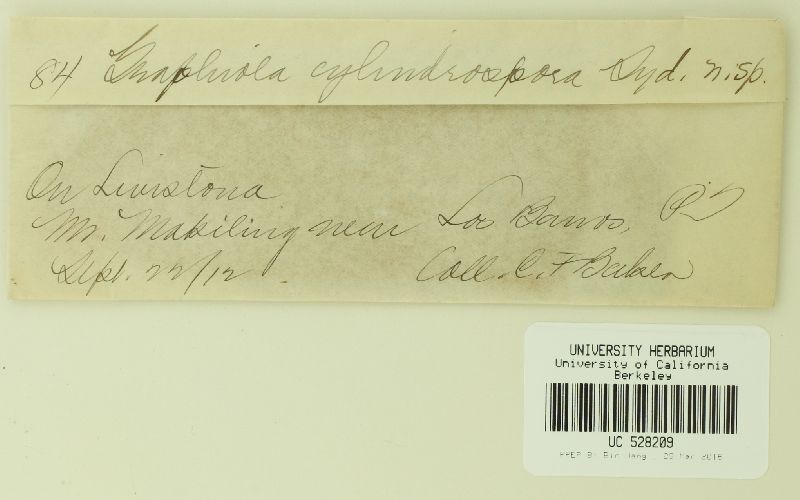 84 Graphiola cylindrospora Syd. n. sp.
On Livistona
Mt. Makiling near Los Banos, P I
Sept. 22/12
Coll. C. F. Baker
UNIVERSITY HERBARIUM
University of California
Berkeley
UC 528209
PREP BY